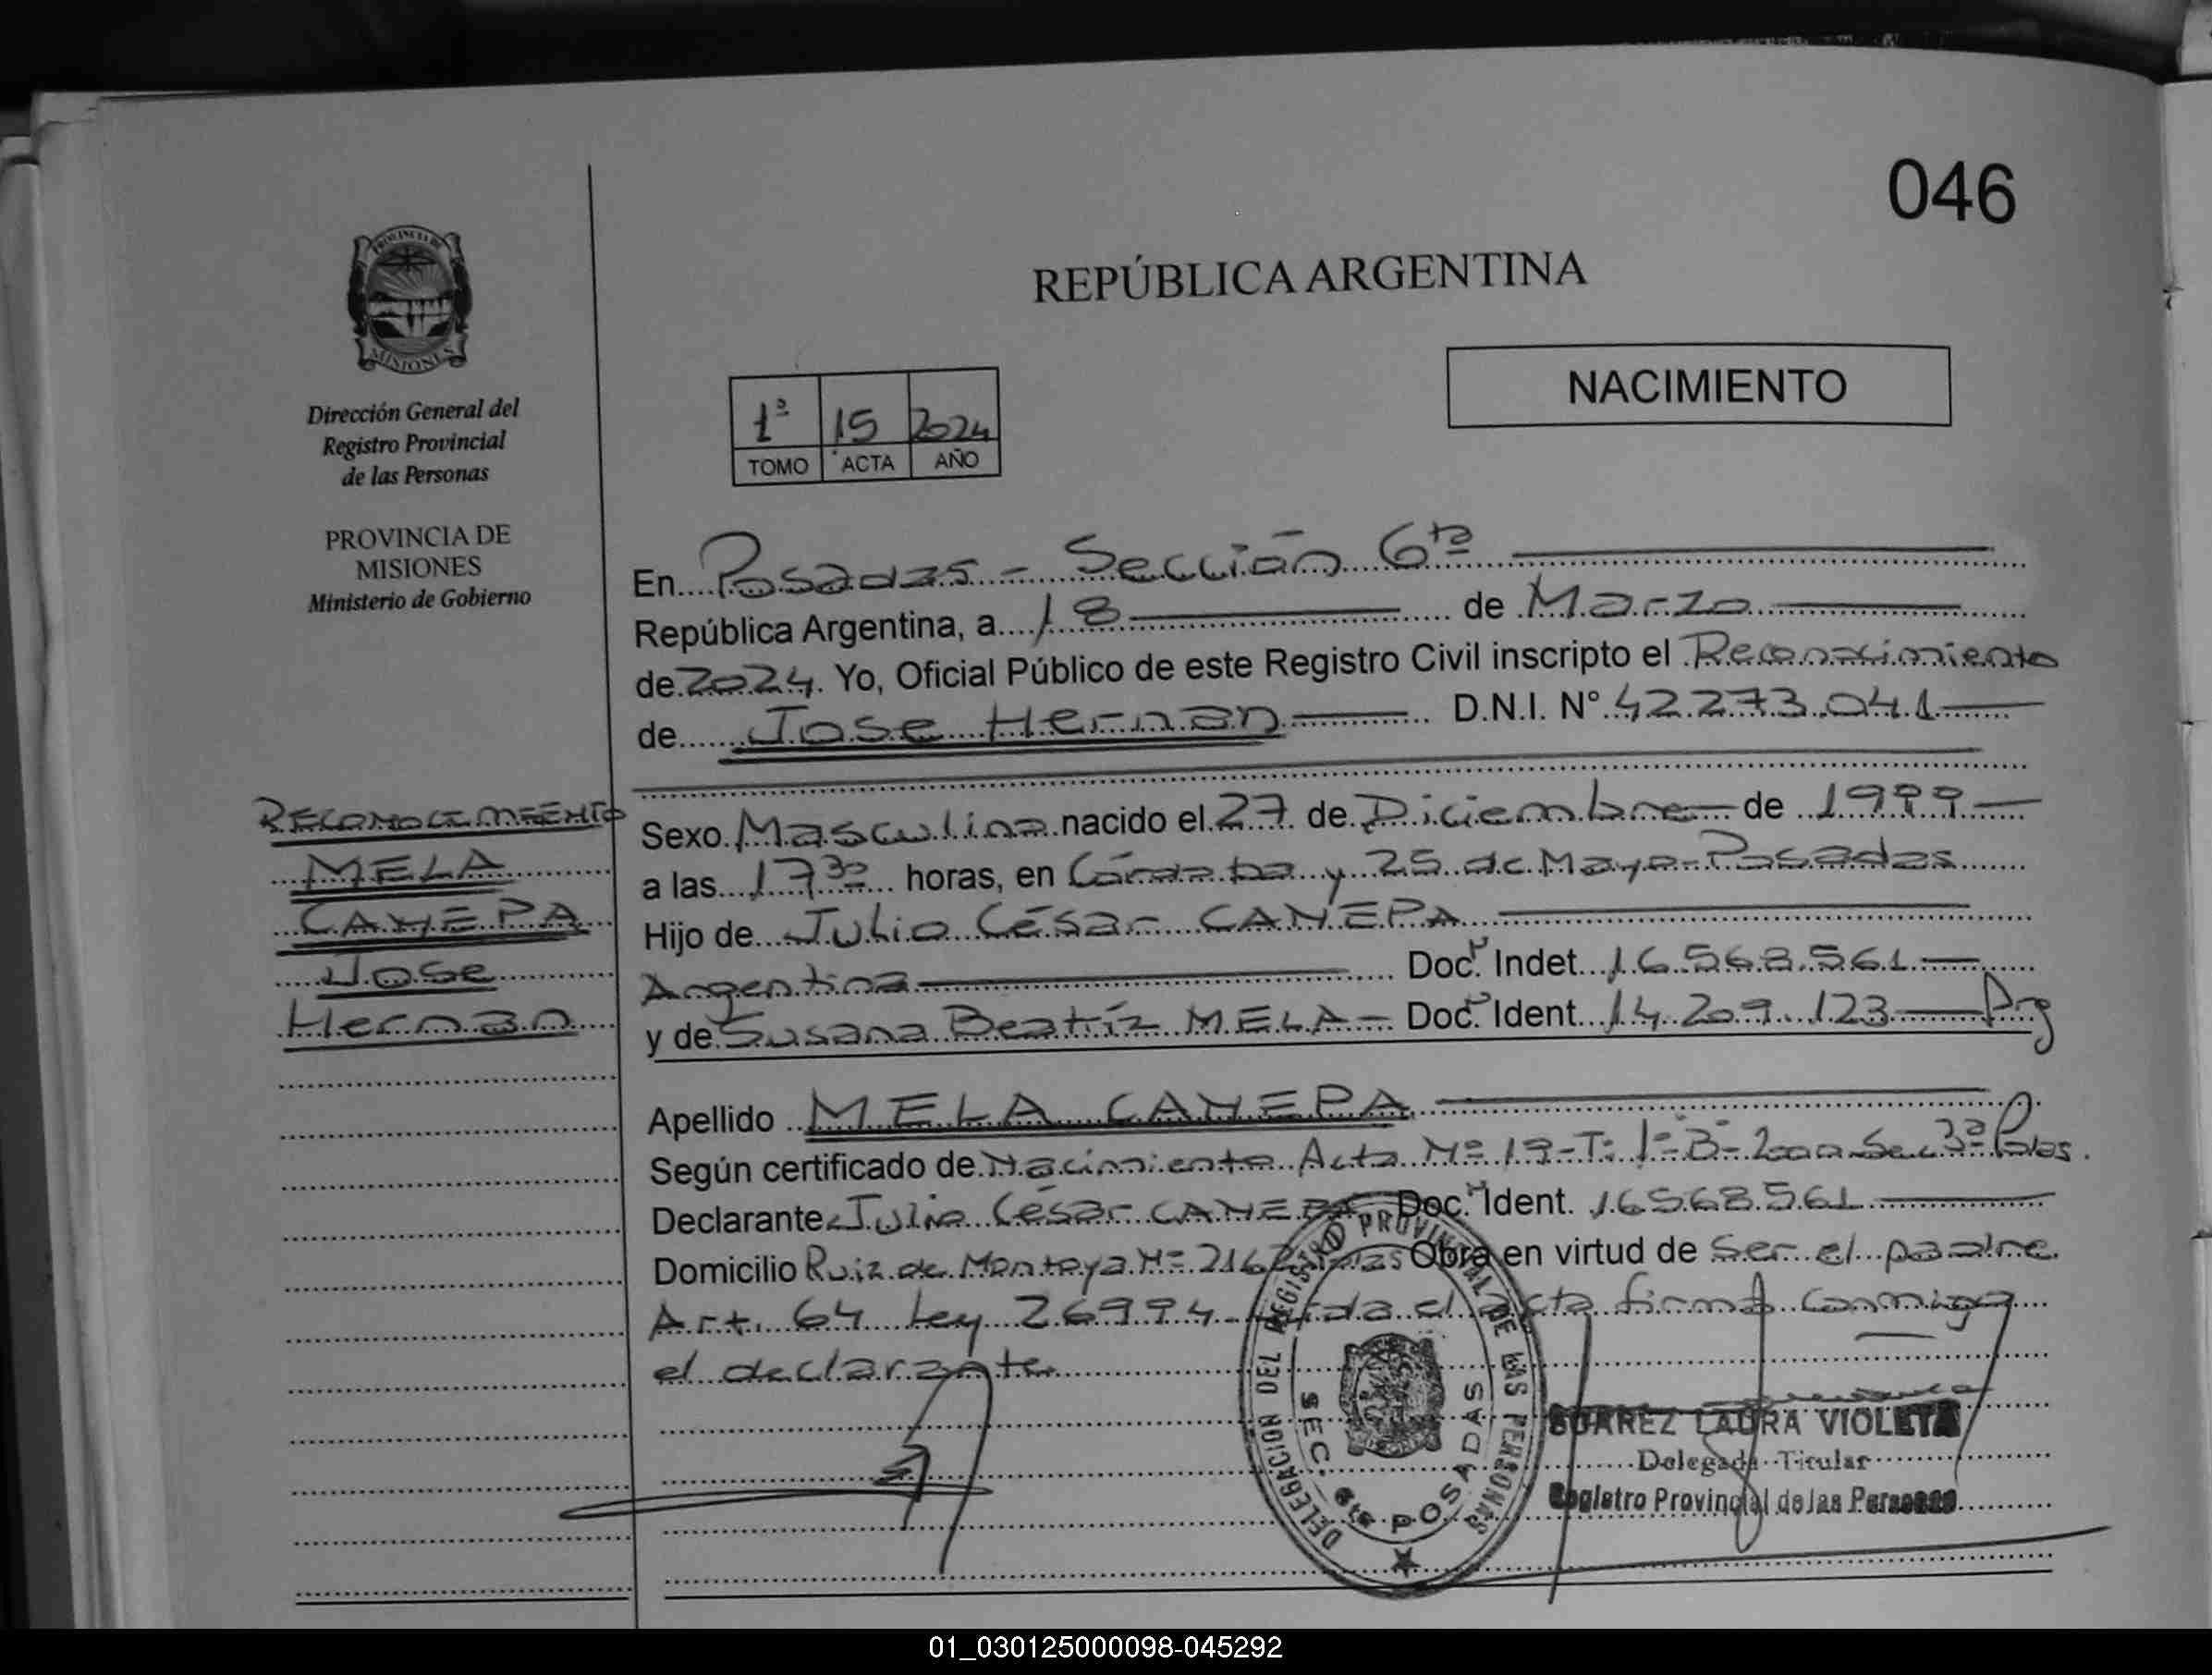 046
REPÚBLICA ARGENTINA
NACIMIENTO
PROVINCIA DE
MISIONES
Dirección General del
Registro Provincial
de las Personas
PROVINCIA DE
MISIONES
Ministerio de Gobierno
1º 15 2024
TOMO ACTA AÑO
En Posadas - Sección 6ta
República Argentina, a 18 de Marzo
de 2024. Yo, Oficial Público de este Registro Civil inscripto el Reconocimiento
de Jose Hernan D.N.I. Nº 42.273.041
RECONOCIMIENTO
MELA
CANEPA
Jose
Hernan
Sexo Masculino nacido el 27 de Diciembre de 1999
a las 17 30 horas, en Córdoba y 25 de Mayo - Posadas
Hijo de Julio César CANEPA
Argentina Doc. Indet. 16.568.561
y de Susana Beatríz MELA - Doc. Ident. 14.209.123 Arg
Apellido MELA CANEPA
Según certificado de Nacimiento Acta Nº 19 - T: 1º - B - 2000 Sec 3ª Pdas.
Declarante Julio César CANEPA Doc. Ident. 16568561
Domicilio Ruiz de Montoya Nº 2162 Obra en virtud de Ser el padre
Art. 64 Ley 26994 - Leida el acta firma conmigo
el declarante
DELEGACION DEL REGISTRO PROVINCIAL DE LAS PERSONAS
SEC. 6ta POSADAS
SUAREZ LAURA VIOLETA
Delegada Titular
Registro Provincial de las Personas
01_030125000098-045292